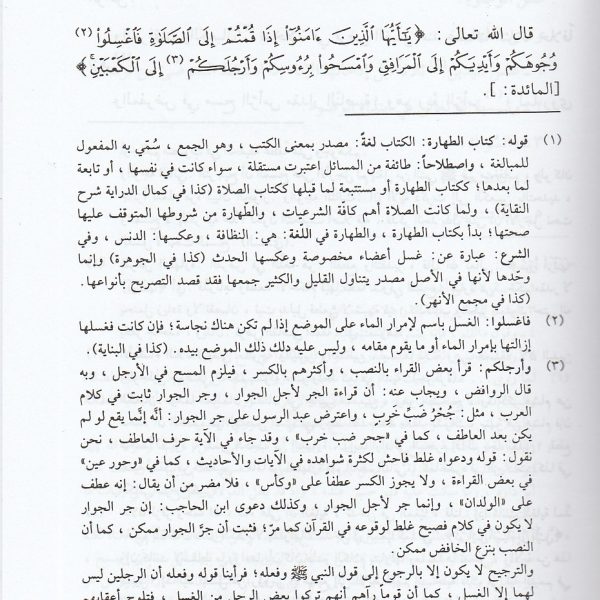 قال الله تعالى: ﴿يَٰٓأَيُّهَا ٱلَّذِينَ ءَامَنُوٓا۟ إِذَا قُمْتُمْ إِلَى ٱلصَّلَوٰةِ فَٱغْسِلُوا۟ (٢)
وُجُوهَكُمْ وَأَيْدِيَكُمْ إِلَى ٱلْمَرَافِقِ وَٱمْسَحُوا۟ بِرُءُوسِكُمْ وَأَرْجُلَكُمْ (٣) إِلَى ٱلْكَعْبَيْنِ﴾
[المائدة: ].
(١) قوله: كتاب الطهارة: الكتاب لغةً: مصدر بمعنى الكتب، وهو الجمع، سُمّي به المفعول
للمبالغة، واصطلاحاً: طائفة من المسائل اعتبرت مستقلة، سواء كانت في نفسها، أو تابعة
لما بعدها؛ ككتاب الطهارة أو مستتبعة لما قبلها ككتاب الصلاة (كذا في كمال الدراية شرح
النقاية)، ولما كانت الصلاة أهم كافّة الشرعيات، والطّهارة من شروطها المتوقف عليها
صحتها؛ بدأ بكتاب الطهارة، والطهارة في اللّغة: هي: النظافة، وعكسها: الدنس، وفي
الشرع: عبارة عن: غسل أعضاء مخصوصة وعكسها الحدث (كذا في الجوهرة) وإنما
وحّدها لأنها في الأصل مصدر يتناول القليل والكثير جمعها فقد قصد التصريح بأنواعها.
(كذا في مجمع الأنهر).
(٢) فاغسلوا: الغسل باسم لإمرار الماء على الموضع إذا لم تكن هناك نجاسة؛ فإن كانت فغسلها
إزالتها بإمرار الماء أو ما يقوم مقامه، وليس عليه دلك ذلك الموضع بيده. (كذا في البناية).
(٣) وأرجلكم: قرأ بعض القراء بالنصب، وأكثرهم بالكسر، فيلزم المسح في الأرجل، وبه
قال الروافض، ويجاب عنه: أن قراءة الجر لأجل الجوار، وجر الجوار ثابت في كلام
العرب، مثل: جُحْرُ ضَبٍّ خَرِبٍ، واعترض عبد الرسول على جر الجوار: أنَّه إنَّما يقع لو لم
يكن بعد العاطف، كما في «جحر ضب خرب»، وقد جاء في الآية حرف العاطف، نحن
نقول: قوله ودعواه غلط فاحش لكثرة شواهده في الآيات والأحاديث، كما في «وحور عين»
في بعض القراءة، ولا يجوز الكسر عطفاً على «وكأس»، فلا مضر من أن يقال: إنه عطف
على «الولدان»، وإنما جر لأجل الجوار، وكذلك دعوى ابن الحاجب: إن جر الجوار
لا يكون في كلام فصيح غلط لوقوعه في القرآن كما مرّ؛ فثبت أن جرَّ الجوار ممكن، كما أن
النصب بنزع الخافض ممكن.
والترجيح لا يكون إلا بالرجوع إلى قول النبي ﷺ وفعله؛ فرأينا قوله وفعله أن الرجلين ليس
لهما إلا الغسل، كما أن قوما رآهم أنهم تركوا بعض الرجل من الغسل، فتلوح أعقابهم